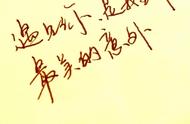 遇见你，是我
最美的意外